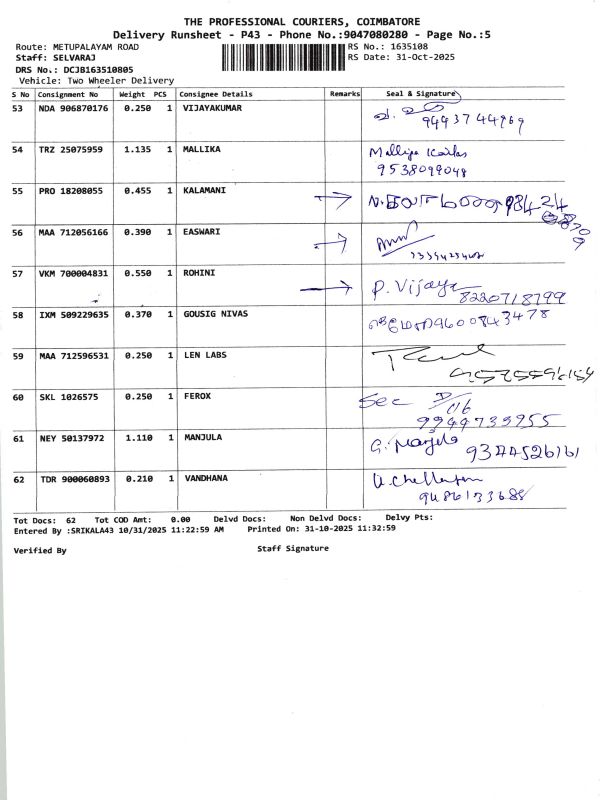 THE PROFESSIONAL COURIERS, COIMBATORE
Delivery Runsheet - P43 - Phone No.:9047080280 - Page No.:5
Route: METUPALAYAM ROAD RS No.: 1635108
Staff: SELVARAJ RS Date: 31-Oct-2025
DRS No.: DCJB163510805
Vehicle: Two Wheeler Delivery
S No Consignment No Weight PCS Consignee Details Remarks Seal & Signature
53 NDA 906870176 0.250 1 VIJAYAKUMAR
9443744969
54 TRZ 25075959 1.135 1 MALLIKA Mallika
9538099048
55 PRO 18208055 0.455 1 KALAMANI
56 MAA 712056166 0.390 1 EASWARI
57 VKM 700004831 0.550 1 ROHINI P. Vijaya
8220718799
58 IXM 509229635 0.370 1 GOUSIG NIVAS 9600843478
59 MAA 712596531 0.250 1 LEN LABS
60 SKL 1026575 0.250 1 FEROX Sec
9944735955
61 NEY 50137972 1.110 1 MANJULA G. Manjula
9344526161
62 TDR 900060893 0.210 1 VANDHANA
9486133688
Tot Docs: 62 Tot COD Amt: 0.00 Delvd Docs: Non Delvd Docs: Delvy Pts:
Entered By :SRIKALA43 10/31/2025 11:22:59 AM Printed On: 31-10-2025 11:32:59
Verified By Staff Signature